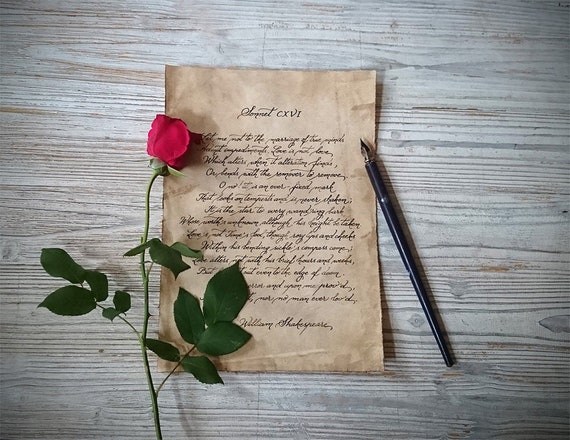 Sonnet CXVI
Let me not to the marriage of true minds
Admit impediments. Love is not love
Which alters when it alteration finds,
Or bends with the remover to remove.
O no! it is an ever-fixed mark
That looks on tempests and is never shaken;
It is the star to every wand'ring bark
Whose worth's unknown, although his height be taken
Love is not Time's fool, though rosy lips and cheeks
Within his bending sickle's compass come;
Love alters not with his brief hours and weeks,
But it out even to the edge of doom
error and upon me prov'd,
nor no man ever lov'd,
William Shakespeare